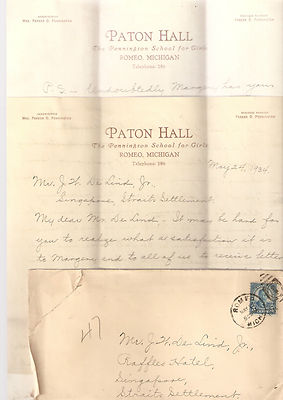 PATON HALL
The Pennington School for Girls
ROMEO, MICHIGAN
Telephone: 186
P.S. - Undoubtedly Margery has yours
PATON HALL
The Pennington School for Girls
ROMEO, MICHIGAN
Telephone: 186
May 24, 1934.
Mr. J. H. De Lind, Jr.,
Singapore, Straits Settlement.
My dear Mr. De Lind - It may be hard for
you to realize what a satisfaction it is
to Margery and to all of us to receive letters
ROMEO
MICH
47
Mr. J. H. De Lind, Jr.,
Raffles Hotel,
Singapore,
Straits Settlement.